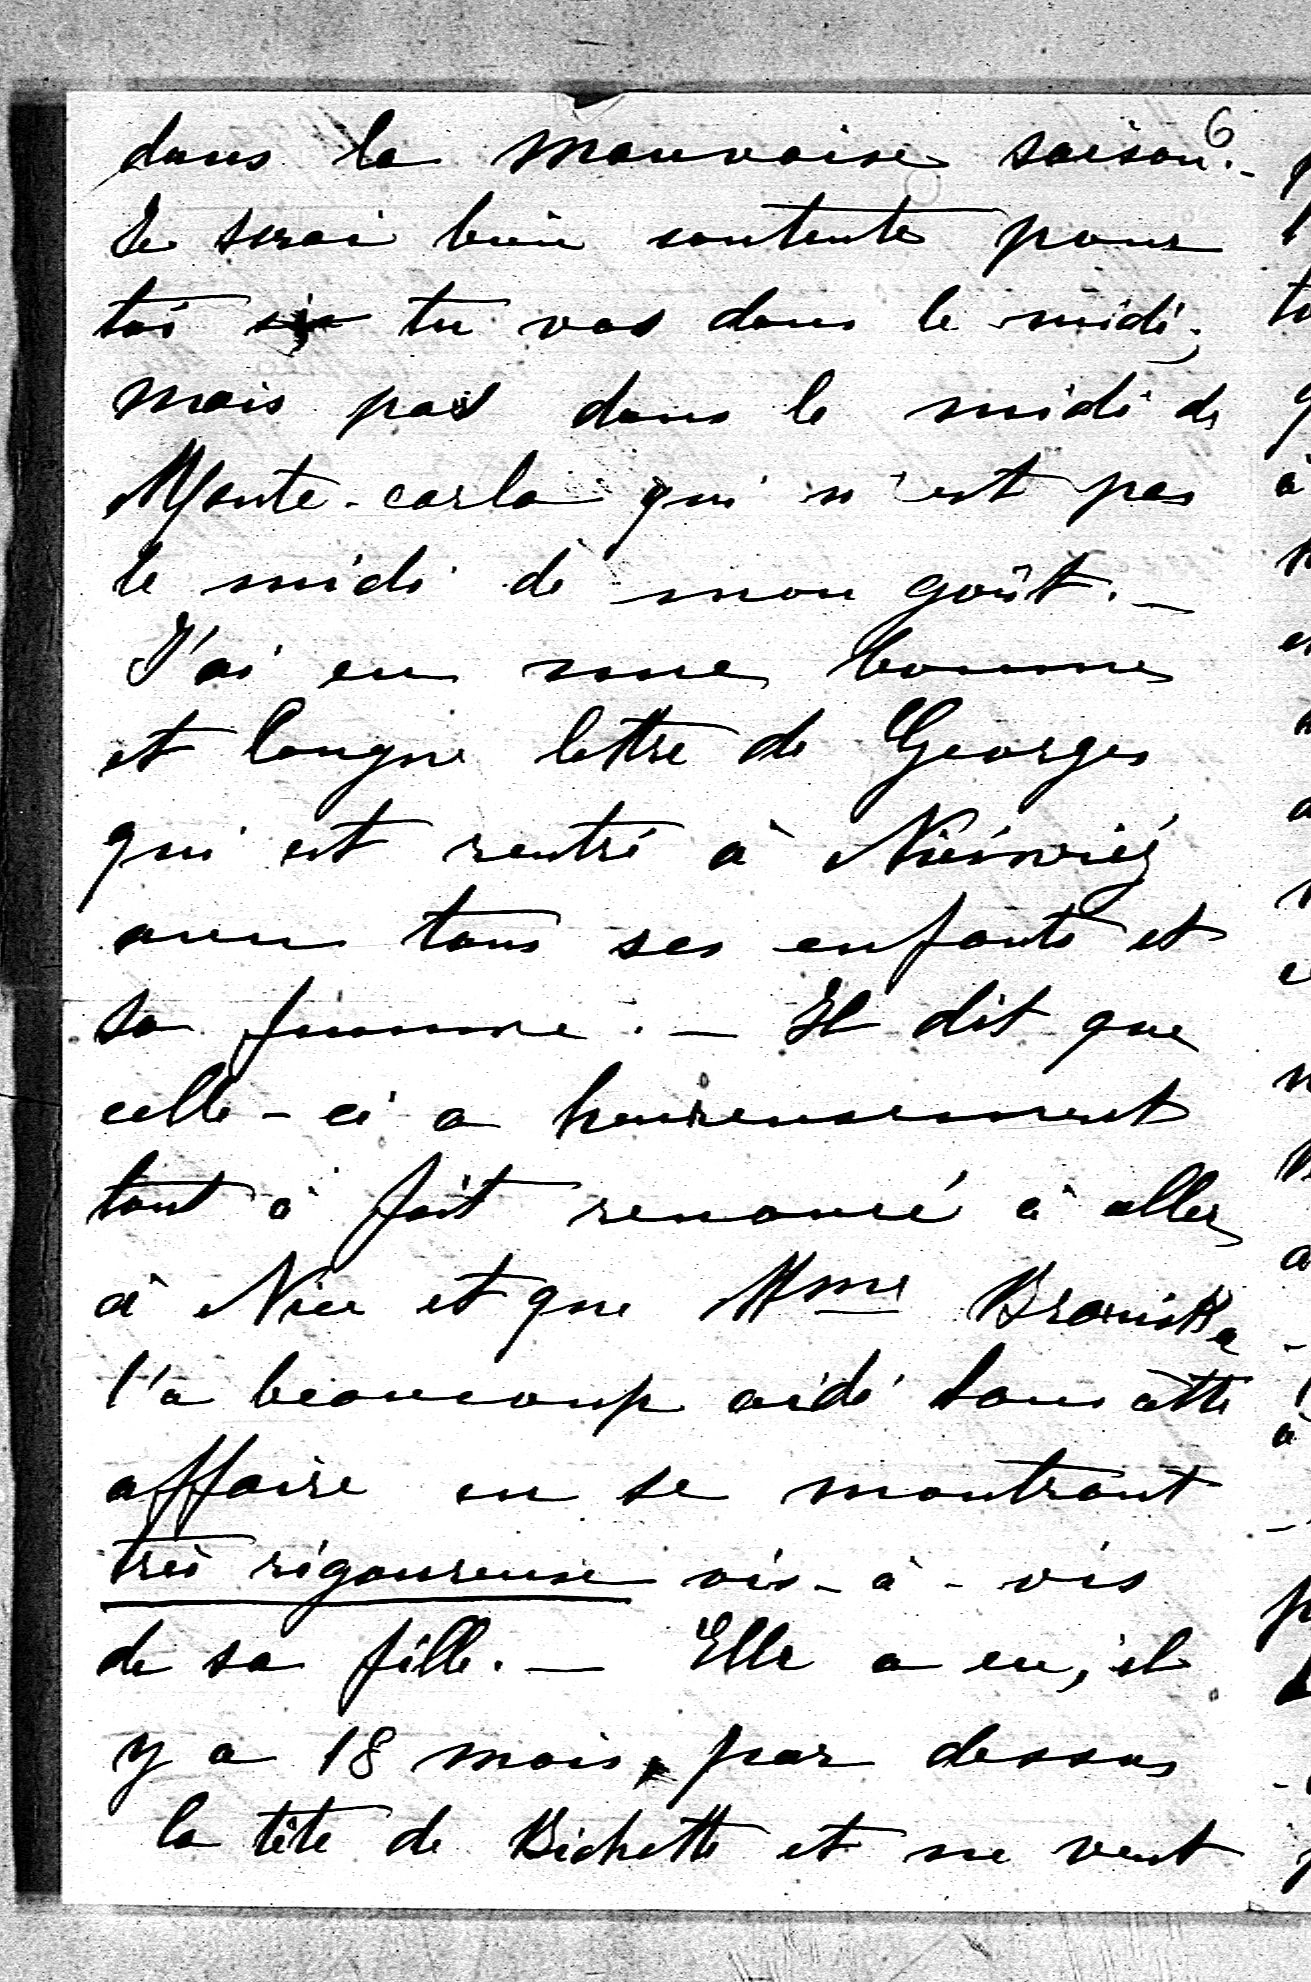 6
dans la mauvaise saison. -
Je serai bien contente pour
toi si tu vas dans le midi;
mais pas dans le midi de
Monte-carlo qui n'est pas
le midi de mon goût. -
J'ai eu une bonne
et longue lettre de Georges
qui est rentré à Nieswiéz
avec tous ses enfants et
sa femme. - Il dit que
celle-ci a heureusement
tout à fait renoncé à aller
à Nice et que Mme Branicka
l'a beaucoup aidé dans cette
affaire en se montrant
très rigoureuse vis-à-vis
de sa fille. - Elle a eu, il
y a 18 mois, par dessus
la tête de Bichette et ne veut